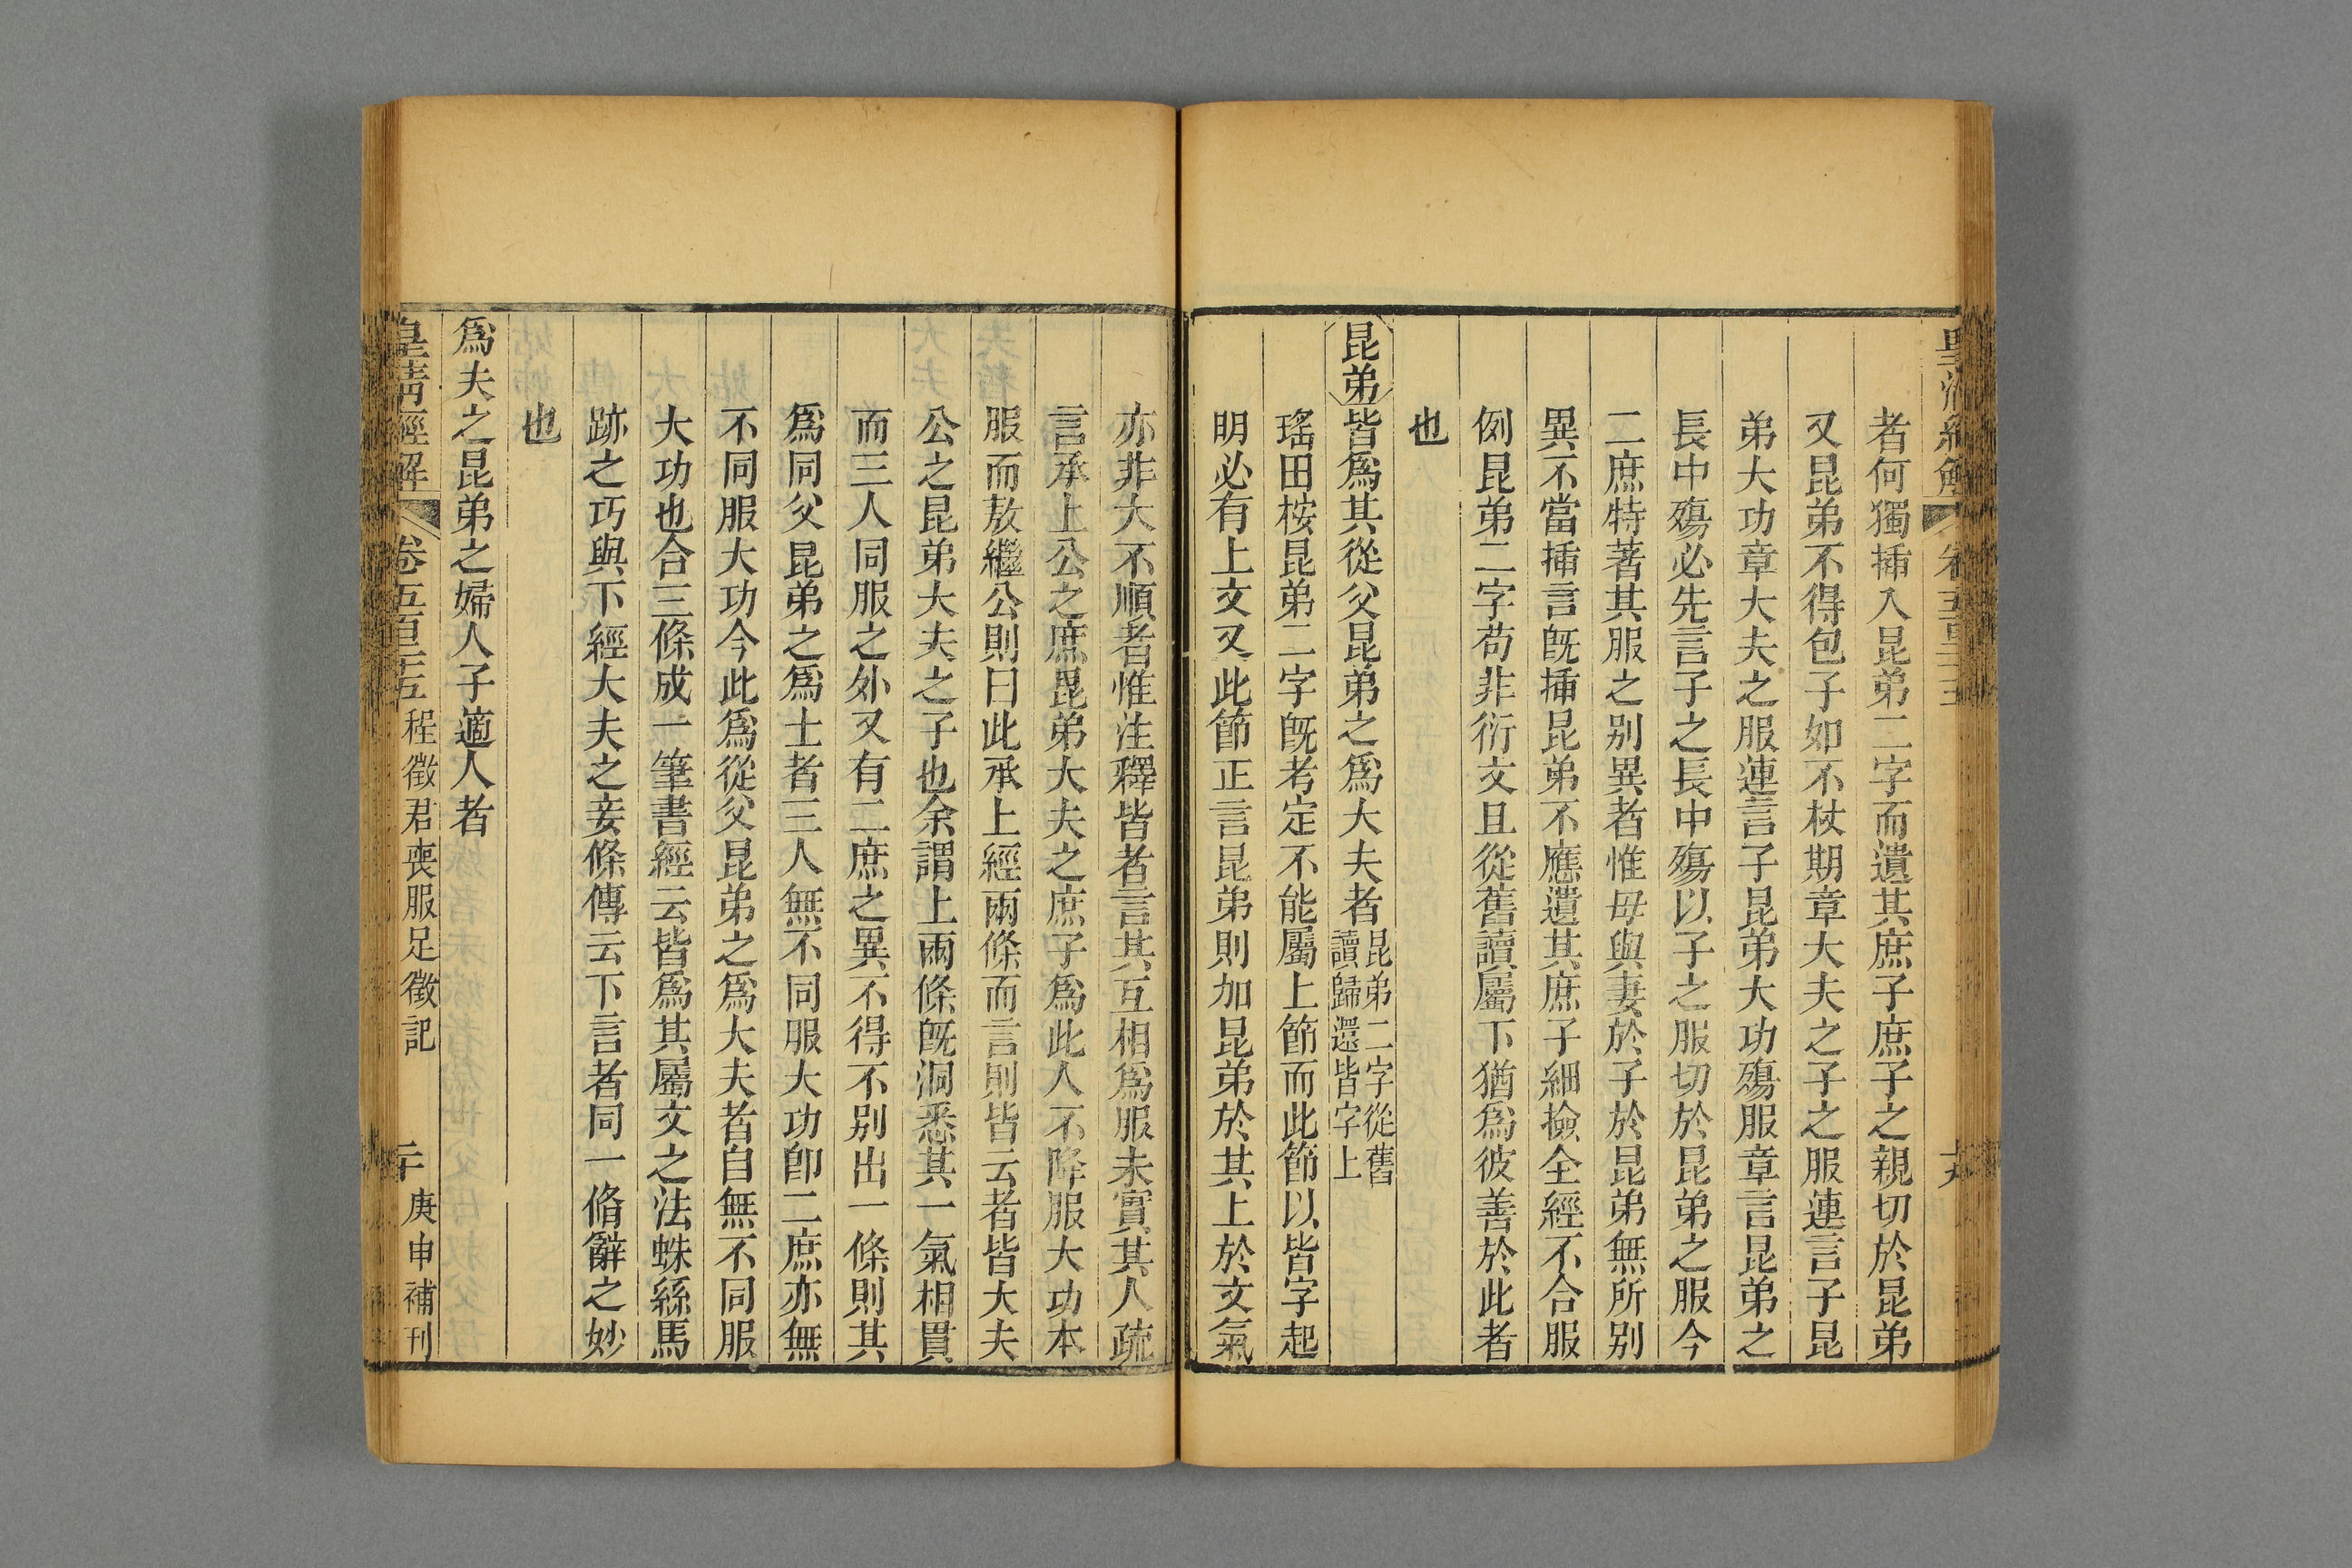 皇清經解
卷五百二十五
十九
者何獨揷入昆弟二字而遺其庶子庶子之親切於昆弟
又昆弟不得包子如不杖期章大夫之子之服連言子昆
弟大功章大夫之服連言子昆弟大功殤服章言昆弟之
長中殤必先言子之長中殤以子之服切於昆弟之服今
二庶特著其服之别異者惟毋與妻於子於昆弟無所别
異不當揷言旣揷昆弟不應遺其庶子細撿全經不合服
例昆弟二字苟非衍文且從舊讀屬下猶爲彼善於此者
也
昆弟皆爲其從父昆弟之爲大夫者昆弟二字從舊讀歸還皆字上
瑤田桉昆弟二字旣考定不能屬上節而此節以皆字起
明必有上文又此節正言昆弟則加昆弟於其上於文氣
亦非大不順者惟注釋皆者言其互相爲服未實其人疏
言承上公之庶昆弟大夫之庶子爲此人不降服大功本
服而敖繼公則曰此承上經兩條而言則皆云者皆大夫
公之昆弟大夫之子也余謂上兩條旣洞悉其一氣相貫
而三人同服之外又有二庶之異不得不别出一條則其
爲同父昆弟之爲士者三人無不同服大功卽二庶亦無
不同服大功今此爲從父昆弟之爲大夫者自無不同服
大功也合三條成一筆書經云皆爲其屬文之法蛛絲馬
跡之巧與下經大夫之妾條傳云下言者同一脩辭之妙
也
爲夫之昆弟之婦人子適人者
皇淸經解
卷五百二十五
程徵君喪服足徵記
二十
庚申補刊